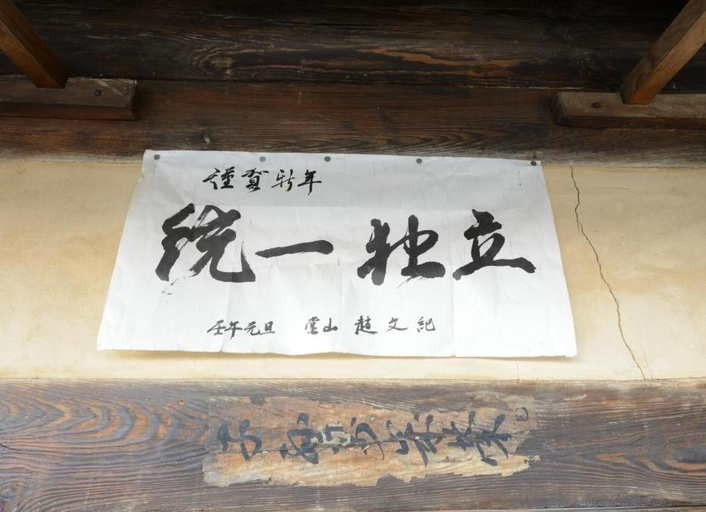 謹賀新年
統一独立
壬午元旦 雲山 趙文紀